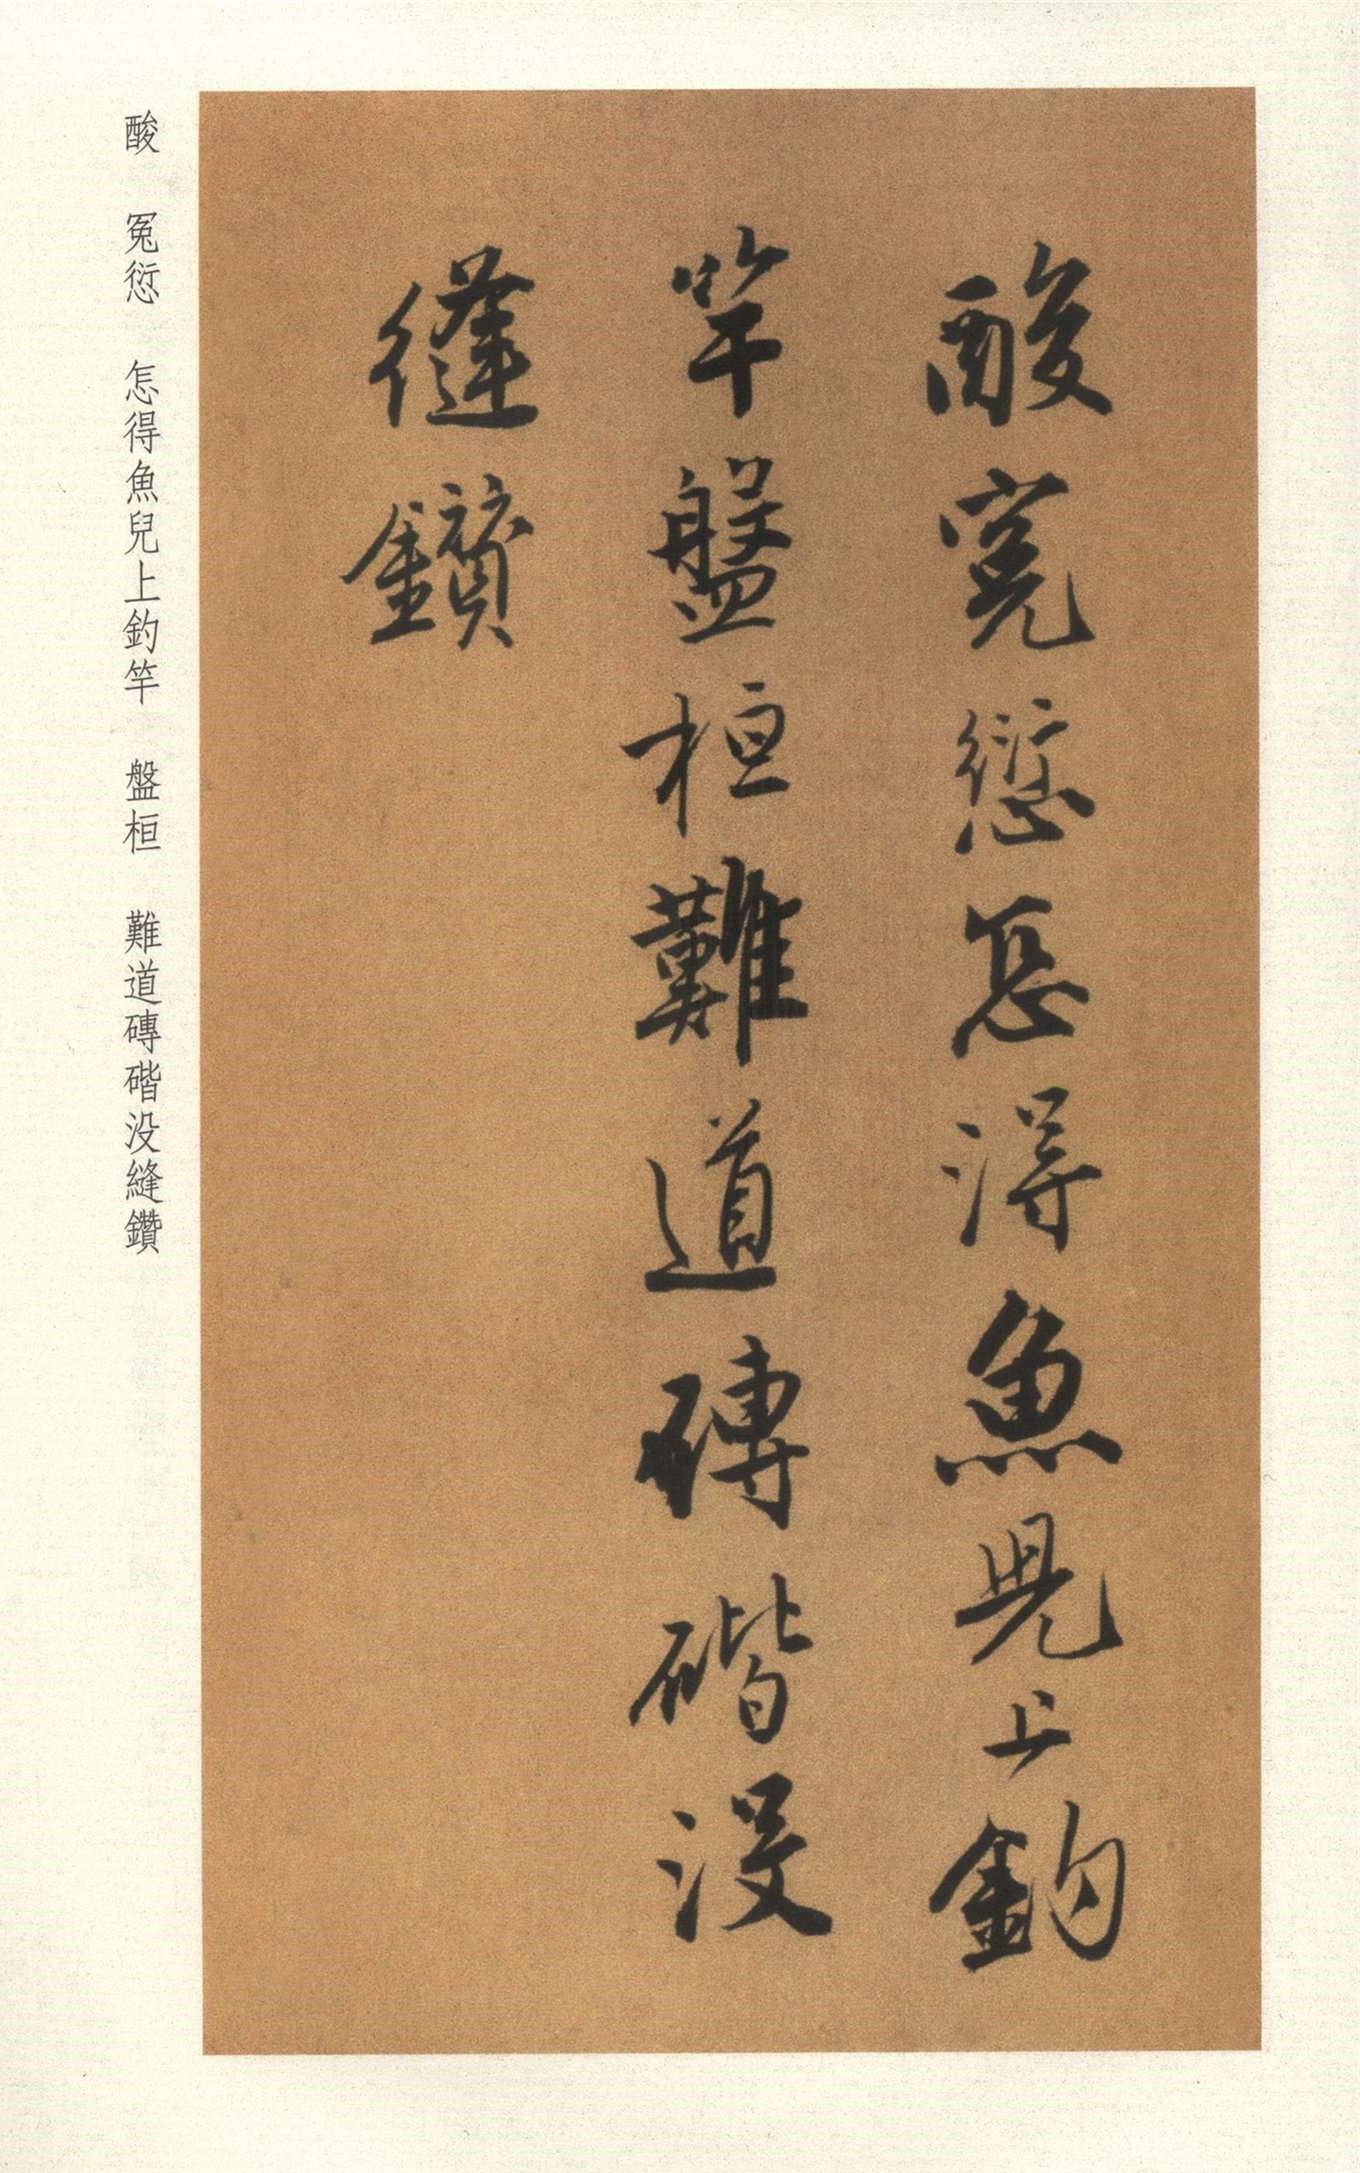 酸冤愆怎得魚兒上釣
竿盤桓難道磚磎没
縫鑽
酸　冤愆　怎得魚兒上釣竿　盤桓　難道磚磎没縫鑽